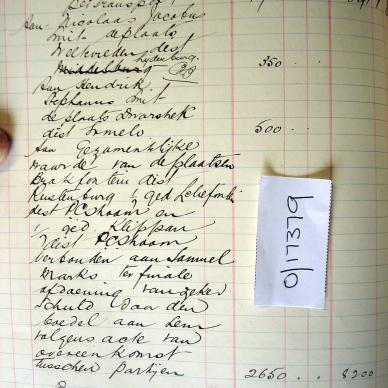 Aan Nicolaas Jacobus
met de plaats
Welkevreden dist
Middelburg Lydenburg.
350 . .
Aan Hendrik
Stephanus met
de plaats Dwarshek
dist Ermelo 500 . .
Aan Gezamentlijke
waarde van de plaatsen
Brakfontein dist
Rustenburg, ged
dist PCShoorn en
ged Klippan
dist PCShoorn
verbonden aan Samuel
Marks ter finale
afdoening van zeker
schuld door den
boedel aan hem
volgens acte van
overeenkomst
tusschen partijen 2650 . . 8200
0/17379